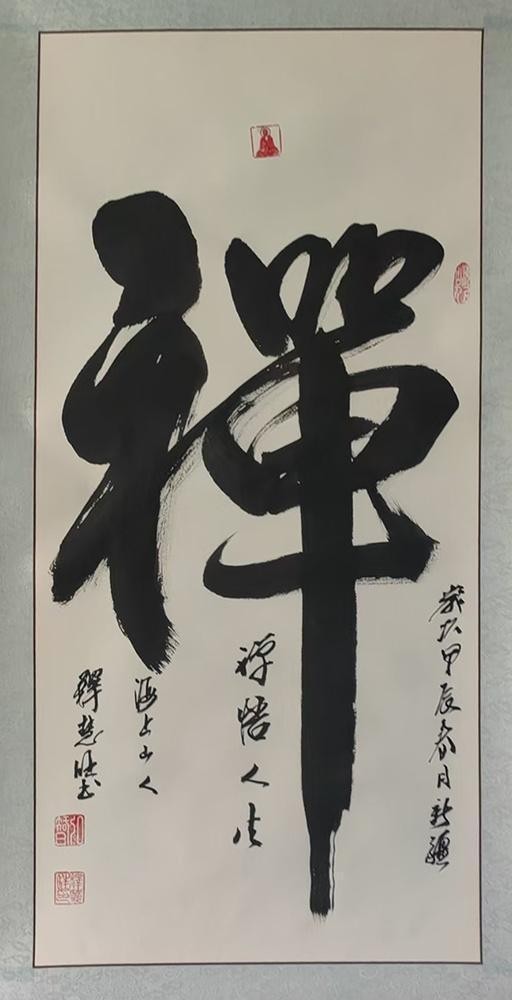 禪
歲次甲辰春月
禪悟人生
海上山人
釋慧 書